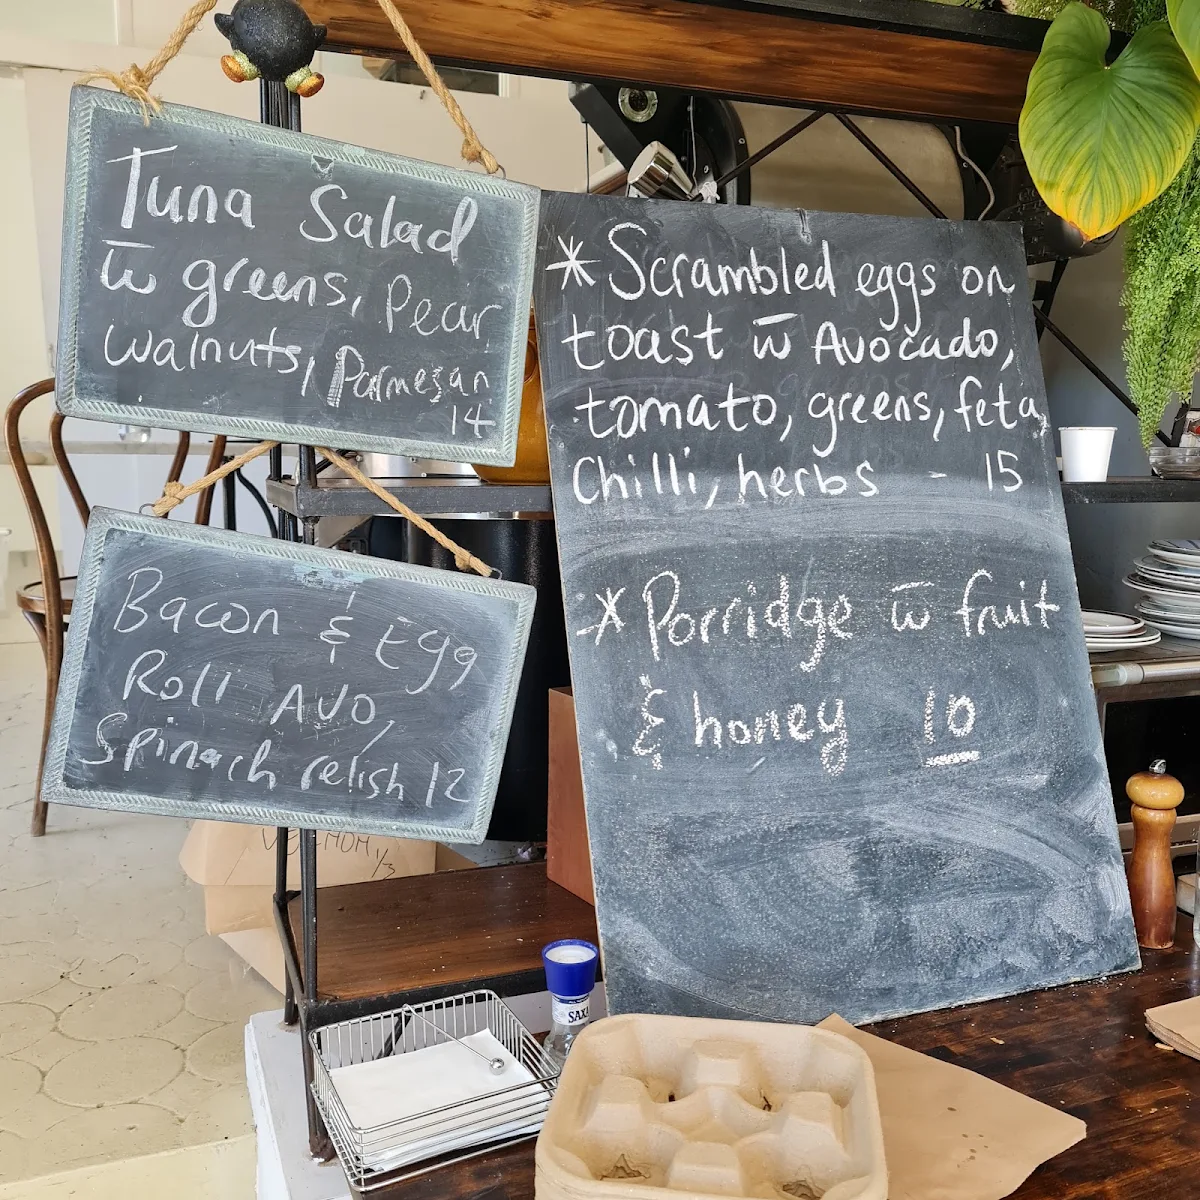 Tuna Salad
w̄ greens, Pear
walnuts, Parmesan
14
Bacon & Egg
Roll Avo,
Spinach relish 12
* Scrambled eggs on
toast w̄ Avocado,
tomato, greens, feta,
Chilli, herbs - 15
* Porridge w̄ fruit
& honey 10
SAXA